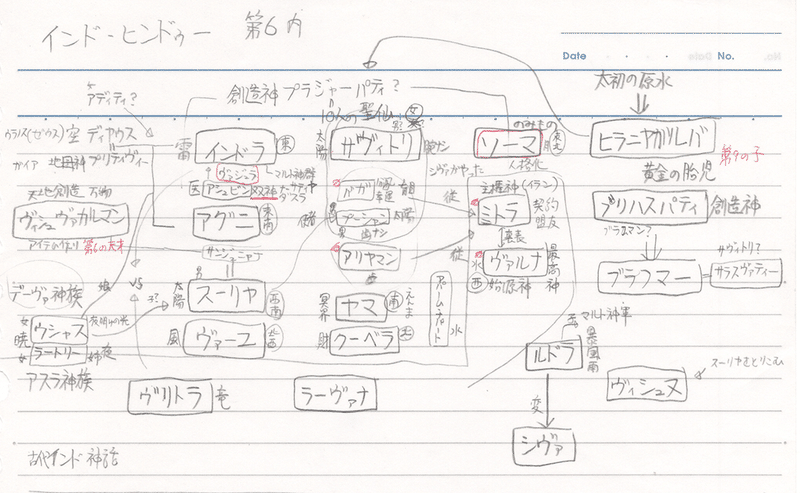 インド-ヒンドゥー 第6内
Date ・ ・ No.
太初の原水
アディティ?
創造神プラジャーパティ?
10人の聖仙
ウラノス(ゼウス)空 ディヤウス
雷 インドラ 東
太陽 サヴィトリ
ソーマ のみもの
ヒラニヤガルバ
第9の子
ガイア 地母神 プリティヴィー
ヴァジラ
マルト神群
人格化
黄金の胎児
医 アシュビン双神
ダスラ
バガ
主権神(イラン)
天地創造 万物
ヴィシュヴァカルマン
アグニ 東南
プーシャン 太陽
歯ナシ
従 ミトラ 契約 盟友
ブリハスパティ 創造神
ブラフマン?
第6の太米
サンジュニャー
アリヤマン
従
水 ヴァルナ 最高神
西 始原神
サヴィトリ?
ブラフマー = サラスヴァティー
デーヴァ神族
VS
太陽 スーリヤ 西南
冥界 ヤマ 南 えんま
女 暁 ウシャス 夜明けの光
風 ヴァーユ 北西
財 クーベラ 北
水
女 ラートリー 姉 夜
マルト神軍
ルドラ 暴風雨
アスラ神族
ヴリトラ 竜
ラーヴァナ
ヴィシュヌ
変
シヴァ
古代インド神話